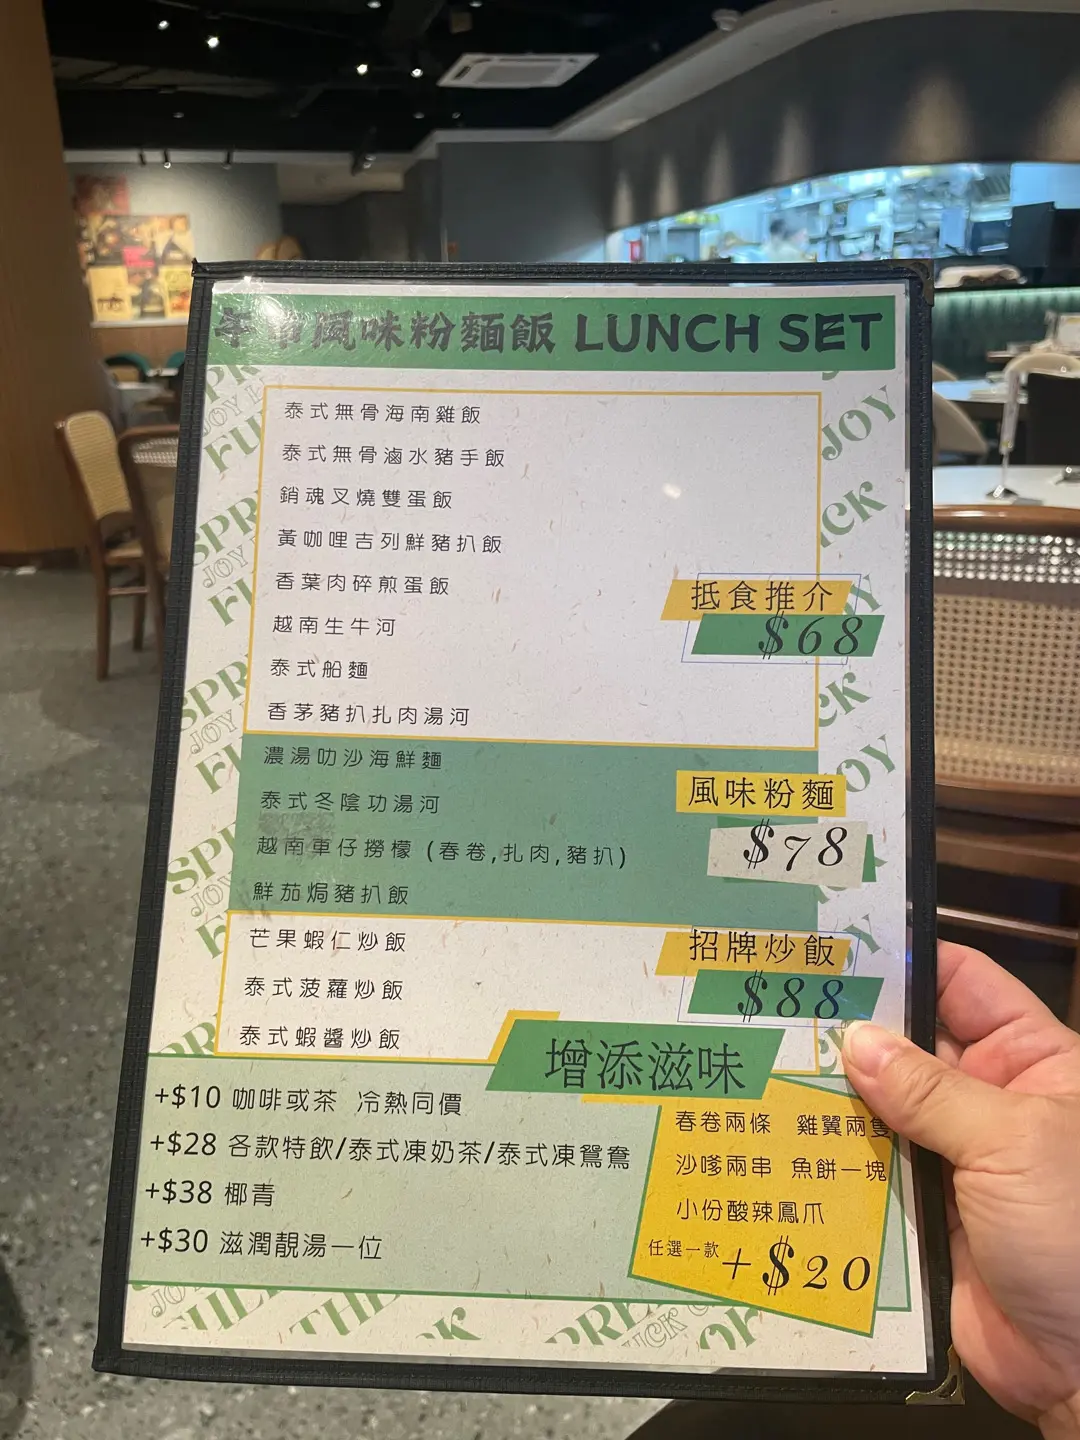 午市風味粉麵飯 LUNCH SET
泰式無骨海南雞飯
泰式無骨滷水豬手飯
銷魂叉燒雙蛋飯
黃咖哩吉列鮮豬扒飯
香葉肉碎煎蛋飯
越南生牛河
泰式船麵
香茅豬扒扎肉湯河
抵食推介
$68
濃湯叻沙海鮮麵
泰式冬陰功湯河
越南車仔撈檬 (春卷,扎肉,豬扒)
鮮茄焗豬扒飯
風味粉麵
$78
芒果蝦仁炒飯
泰式菠蘿炒飯
泰式蝦醬炒飯
招牌炒飯
$88
增添滋味
+$10 咖啡或茶 冷熱同價
+$28 各款特飲/泰式凍奶茶/泰式凍鴛鴦
+$38 椰青
+$30 滋潤靚湯一位
春卷兩條 雞翼兩隻
沙嗲兩串 魚餅一塊
小份酸辣鳳爪
任選一款 +$20